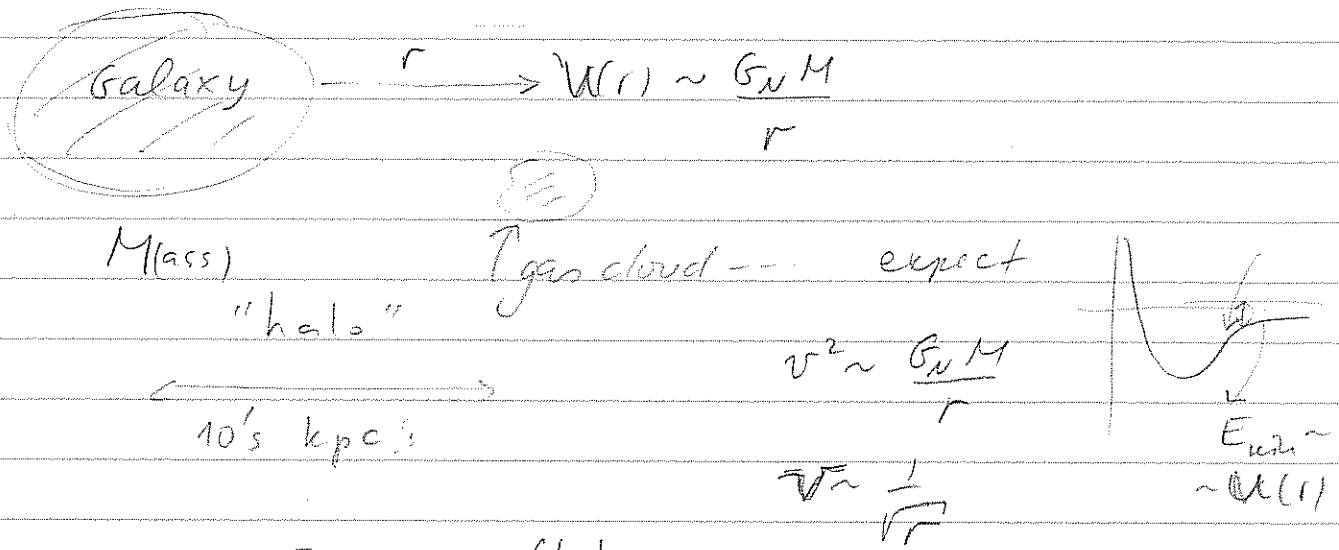 Galaxy r → U(r) ~ G_N M / r
M(ass) ↑ gas cloud --- expect
"halo"
v² ~ G_N M / r
10's kpc's
E_kin ~
v ~ 1/√r ~ U(r)